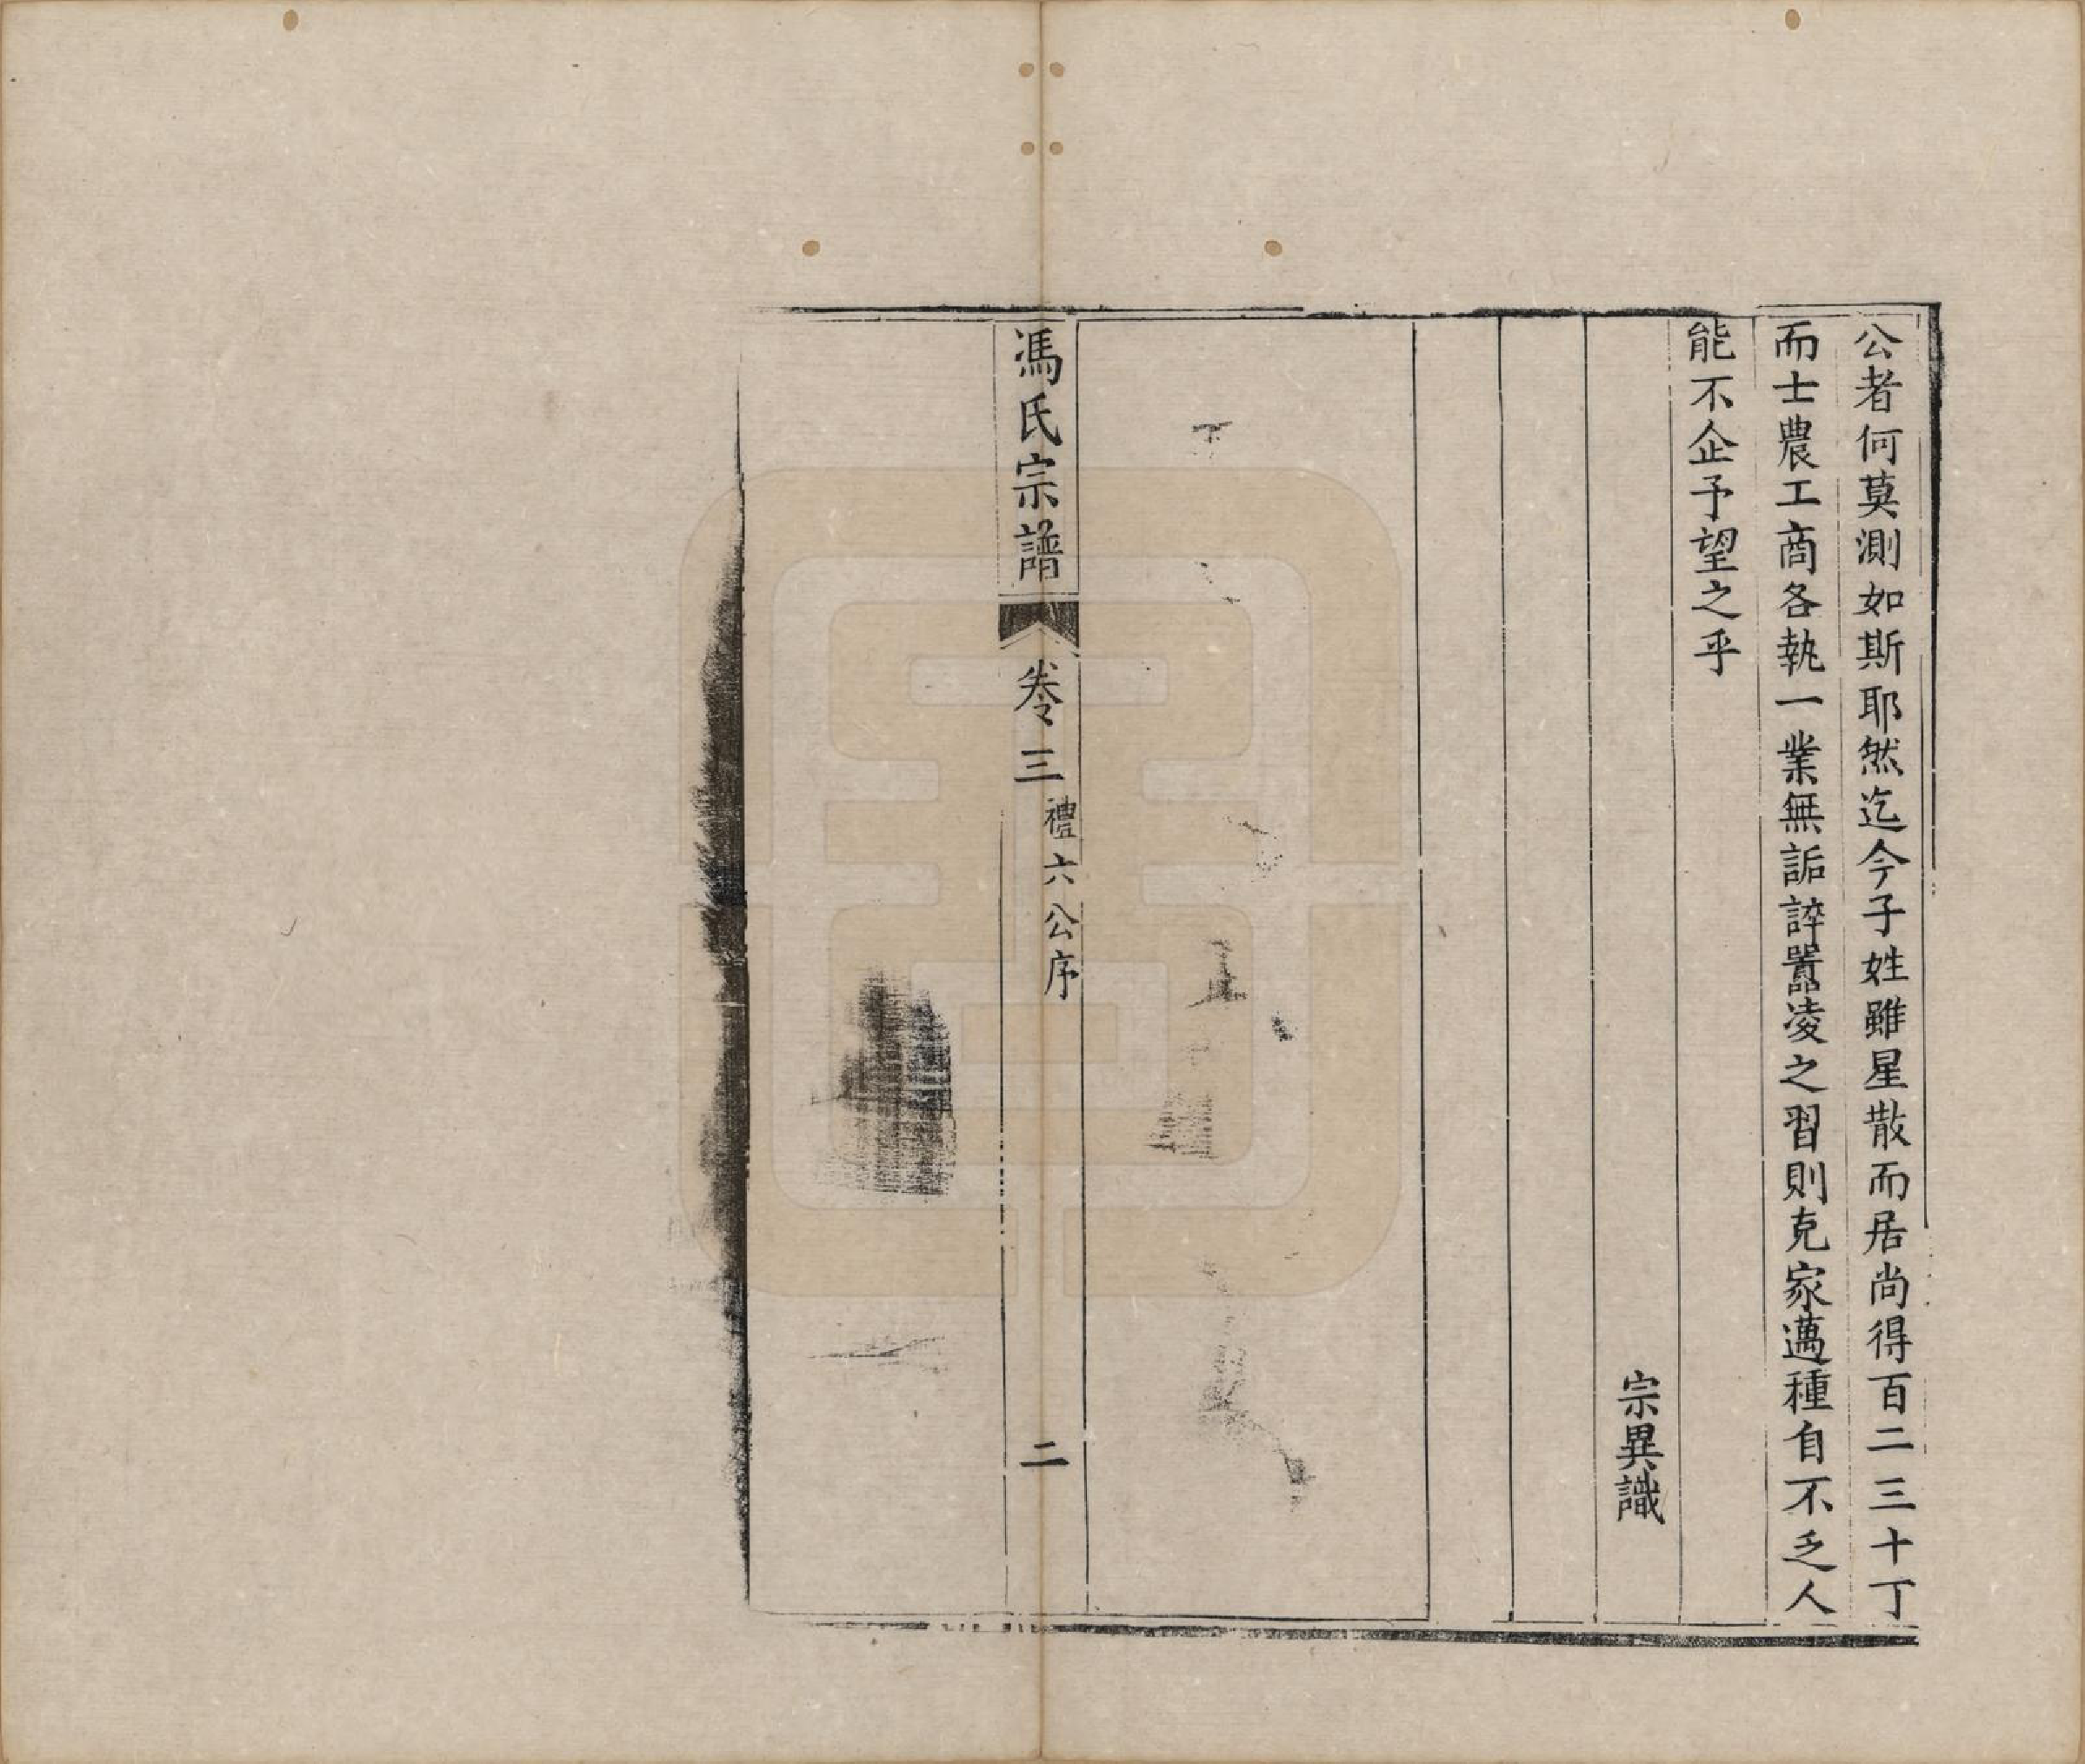 公者何莫測如斯耶然迄今子姓雖星散而居尚得百二三十丁
而士農工商各執一業無詬誶囂凌之習則克家邁種自不乏人
能不企予望之乎
宗異識
馮氏宗譜 卷三 禮六公序 二